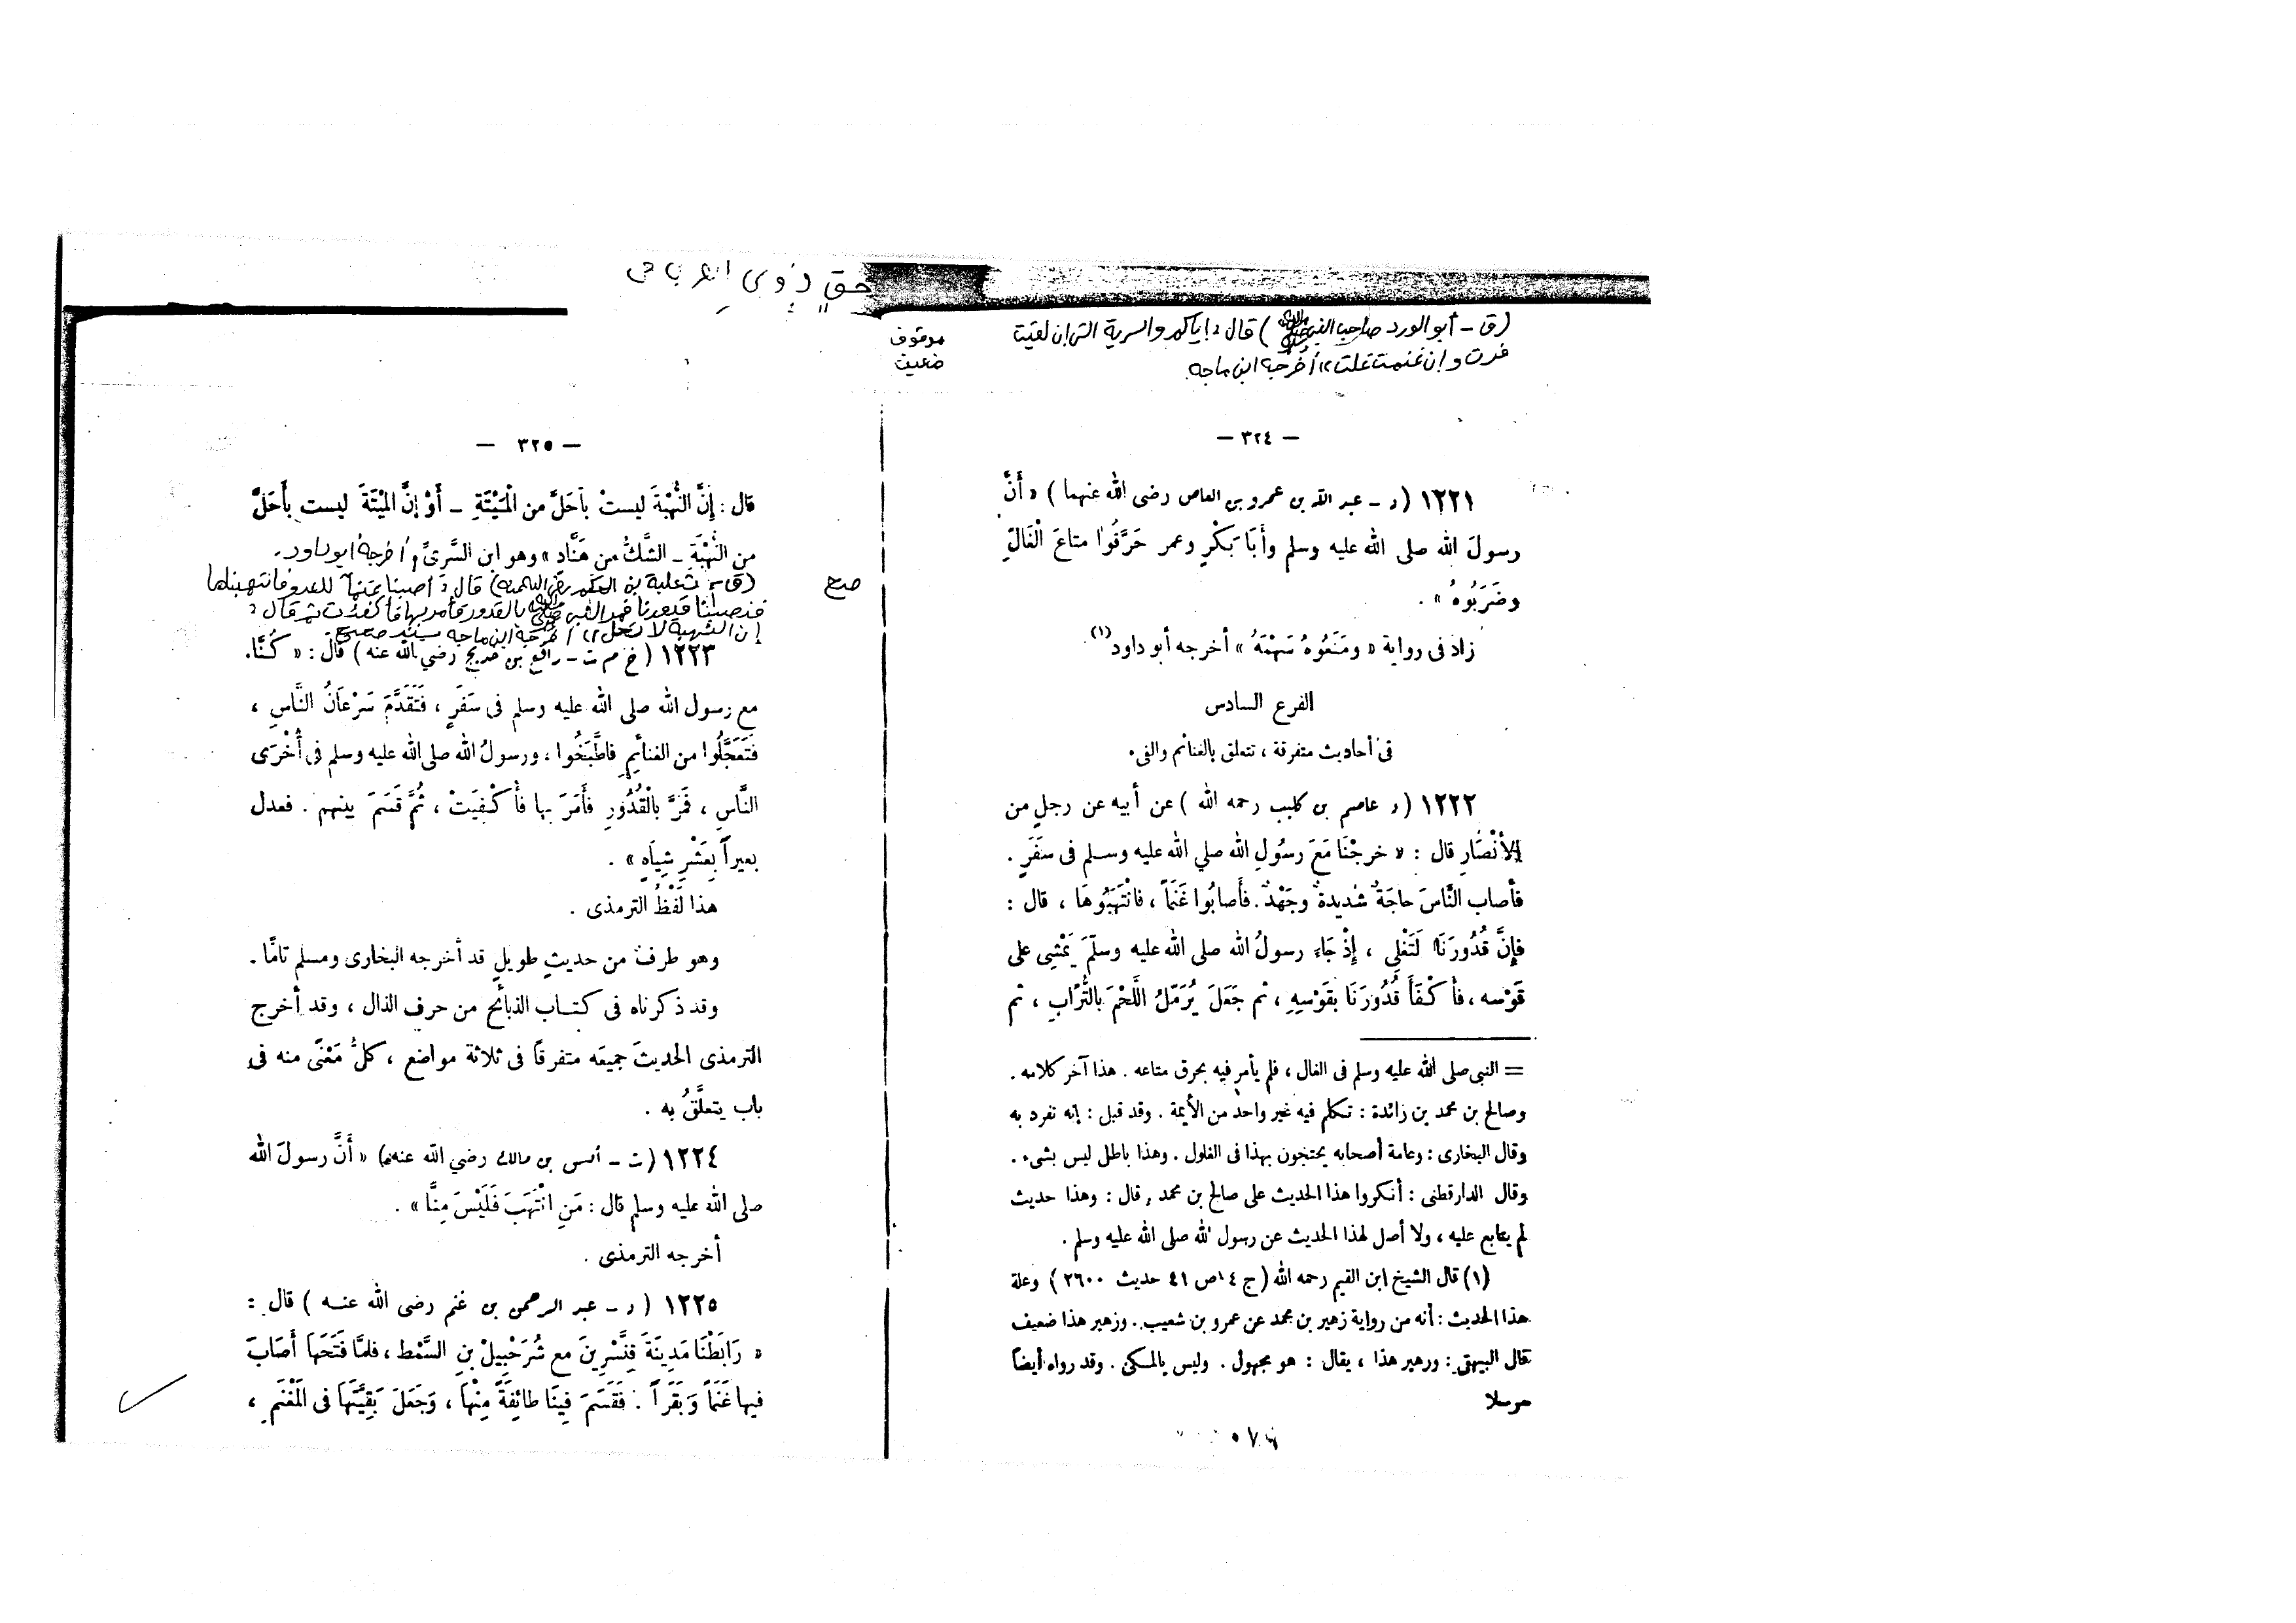 حق ذوي القربى
(ق - أبو الورد صاحب النبي ﷺ) قال: إياكم والسرية التي إن لقيت
فرت وإن غنمت غلت» أخرجه ابن ماجه.
موقوف
ضعيف
— ٣٢٤ —
١٢٢١ (د - عبد الله بن عمرو بن العاص رضى الله عنهما) « أَنَّ
رسولَ الله صلى الله عليه وسلم وأَبَا بَكْرٍ وعمر حَرَّقُوا متاعَ الْغَالِّ
وضَرَبُوهُ » .
زاد فى رواية « ومَنَعُوهُ سَهْمَهُ » أخرجه أبو داود(١)
الفرع السادس
فى أحاديث متفرقة ، تتعلق بالغنائم والفىء
١٢٢٢ (د عاصم بن كليب رحمه الله ) عن أبيه عن رجلٍ من
الأنْصَارِ قال : « خرجْنَا مَعَ رسُولِ الله صلي الله عليه وسلم فى سَفَرٍ .
فأصاب النَّاسَ حاجَةٌ شديدةٌ وجَهْدٌ. فَأَصابُوا غَنَماً ، فانْتَهَبُوهَا ، قال :
فإِنَّ قُدُورَنَا لَتَغْلِى ، إِذْ جَاء رسولُ الله صلى الله عليه وسلّمَ يَمْشِى على
قَوْسه ، فأَ كْفَأَ قُدُورَنَا بقَوْسِهِ ، ثم جَعَلَ يُرَمِّلُ اللَّحْمَ بالتُّرَابِ ، ثم
= النبى صلى الله عليه وسلم فى الغال ، فلم يأمر فيه بحرق متاعه . هذا آخر كلامه .
وصالح بن محمد بن زائدة : تكلم فيه غير واحد من الأيمة . وقد قيل : إنه تفرد به
وقال البخارى : وعامة أصحابه يحتجون بهذا فى الغلول . وهذا باطل ليس بشىء .
وقال الدارقطنى : أنكروا هذا الحديث على صالح بن محمد ، قال : وهذا حديث
لم يتابع عليه ، ولا أصل لهذا الحديث عن رسول الله صلى الله عليه وسلم .
(١) قال الشيخ ابن القيم رحمه الله (ج ٤ ص ٤١ حديث ٢٦٠٠ ) وعلة
هذا الحديث : أنه من رواية زهير بن محمد عن عمرو بن شعيب . وزهير هذا ضعيف
قال البيهقى : وزهير هذا ، يقال : هو مجهول . وليس بالمكى . وقد رواه أيضاً
مرسلا
— ٣٢٥ —
قال : إِنَّ النُّهْبَةَ ليستْ بأَحَلَّ من الْمَيْتَةِ - أَوْ إِنَّ المَيْتَةَ ليست بِأَحَلَّ
من النُّهْبَةِ - الشَّكُّ من هَنَّادٍ » وهو ابن السَّرِىِّ، أخرجه أبو داود.
(ق - ثعلبة بن الحكم رضي الله عنه) قال: أصبنا غنماً للعدو فانتهبناها
فنصبنا قدورنا فمر النبي ﷺ بالقدور فأمر بها فأكفئت ثم قال:
إن النهبة لا تحل» أخرجه ابن ماجه بسند صحيح.
صح
١٢٢٣ (خ م ت - رافع بن خديج رضي الله عنه ) قال : « كُنَّا
مع رسول الله صلى الله عليه وسلم فى سَفَرٍ ، فَتَقَدَّمَ سَرْعَانُ النَّاسِ ،
فَتَعَجَّلُوا من الغنائِمِ فاطَّبَخُوا ، ورسولُ الله صلى الله عليه وسلم فى أُخْرَى
النَّاسِ ، فَمَرَّ بالْقُدُورِ فأَمَرَ بها فأُ كْفِيَتْ ، ثُمَّ قَسَمَ بينهم . فعدل
بعيراً بِعَشْرِ شِيَاهٍ » .
هذا لَفْظُ الترمذى .
وهو طرف من حديثٍ طويلٍ قد أخرجه البخارى ومسلم تامًّا .
وقد ذكرناه فى كتاب الذبائح من حرف الذال ، وقد أخرج
الترمذى الحديثَ جميعَه متفرقاً فى ثلاثة مواضع ، كلُّ مَعْنًى منه فى
باب يتعلَّقُ به .
١٢٢٤ (ت - أنس بن مالك رضي الله عنه) « أَنَّ رسولَ الله
صلى الله عليه وسلم قال : مَنِ انْتَهَبَ فَلَيْسَ مِنَّا » .
أخرجه الترمذى .
١٢٢٥ ( د - عبد الرحمن بن غنم رضى الله عنه ) قال :
« رَابَطْنَا مَدِينَةَ قِنَّسْرِينَ مع شُرَحْبِيلْ بنِ السَّمْط ، فلمَّا فَتَحَهَا أَصَابَ
فيها غَنَماً وَبَقَراً . فَقَسَمَ فِينَا طائِفَةً مِنْهَا ، وَجَعَلَ بَقِيَّتَهَا فى المَغْنَمِ ،